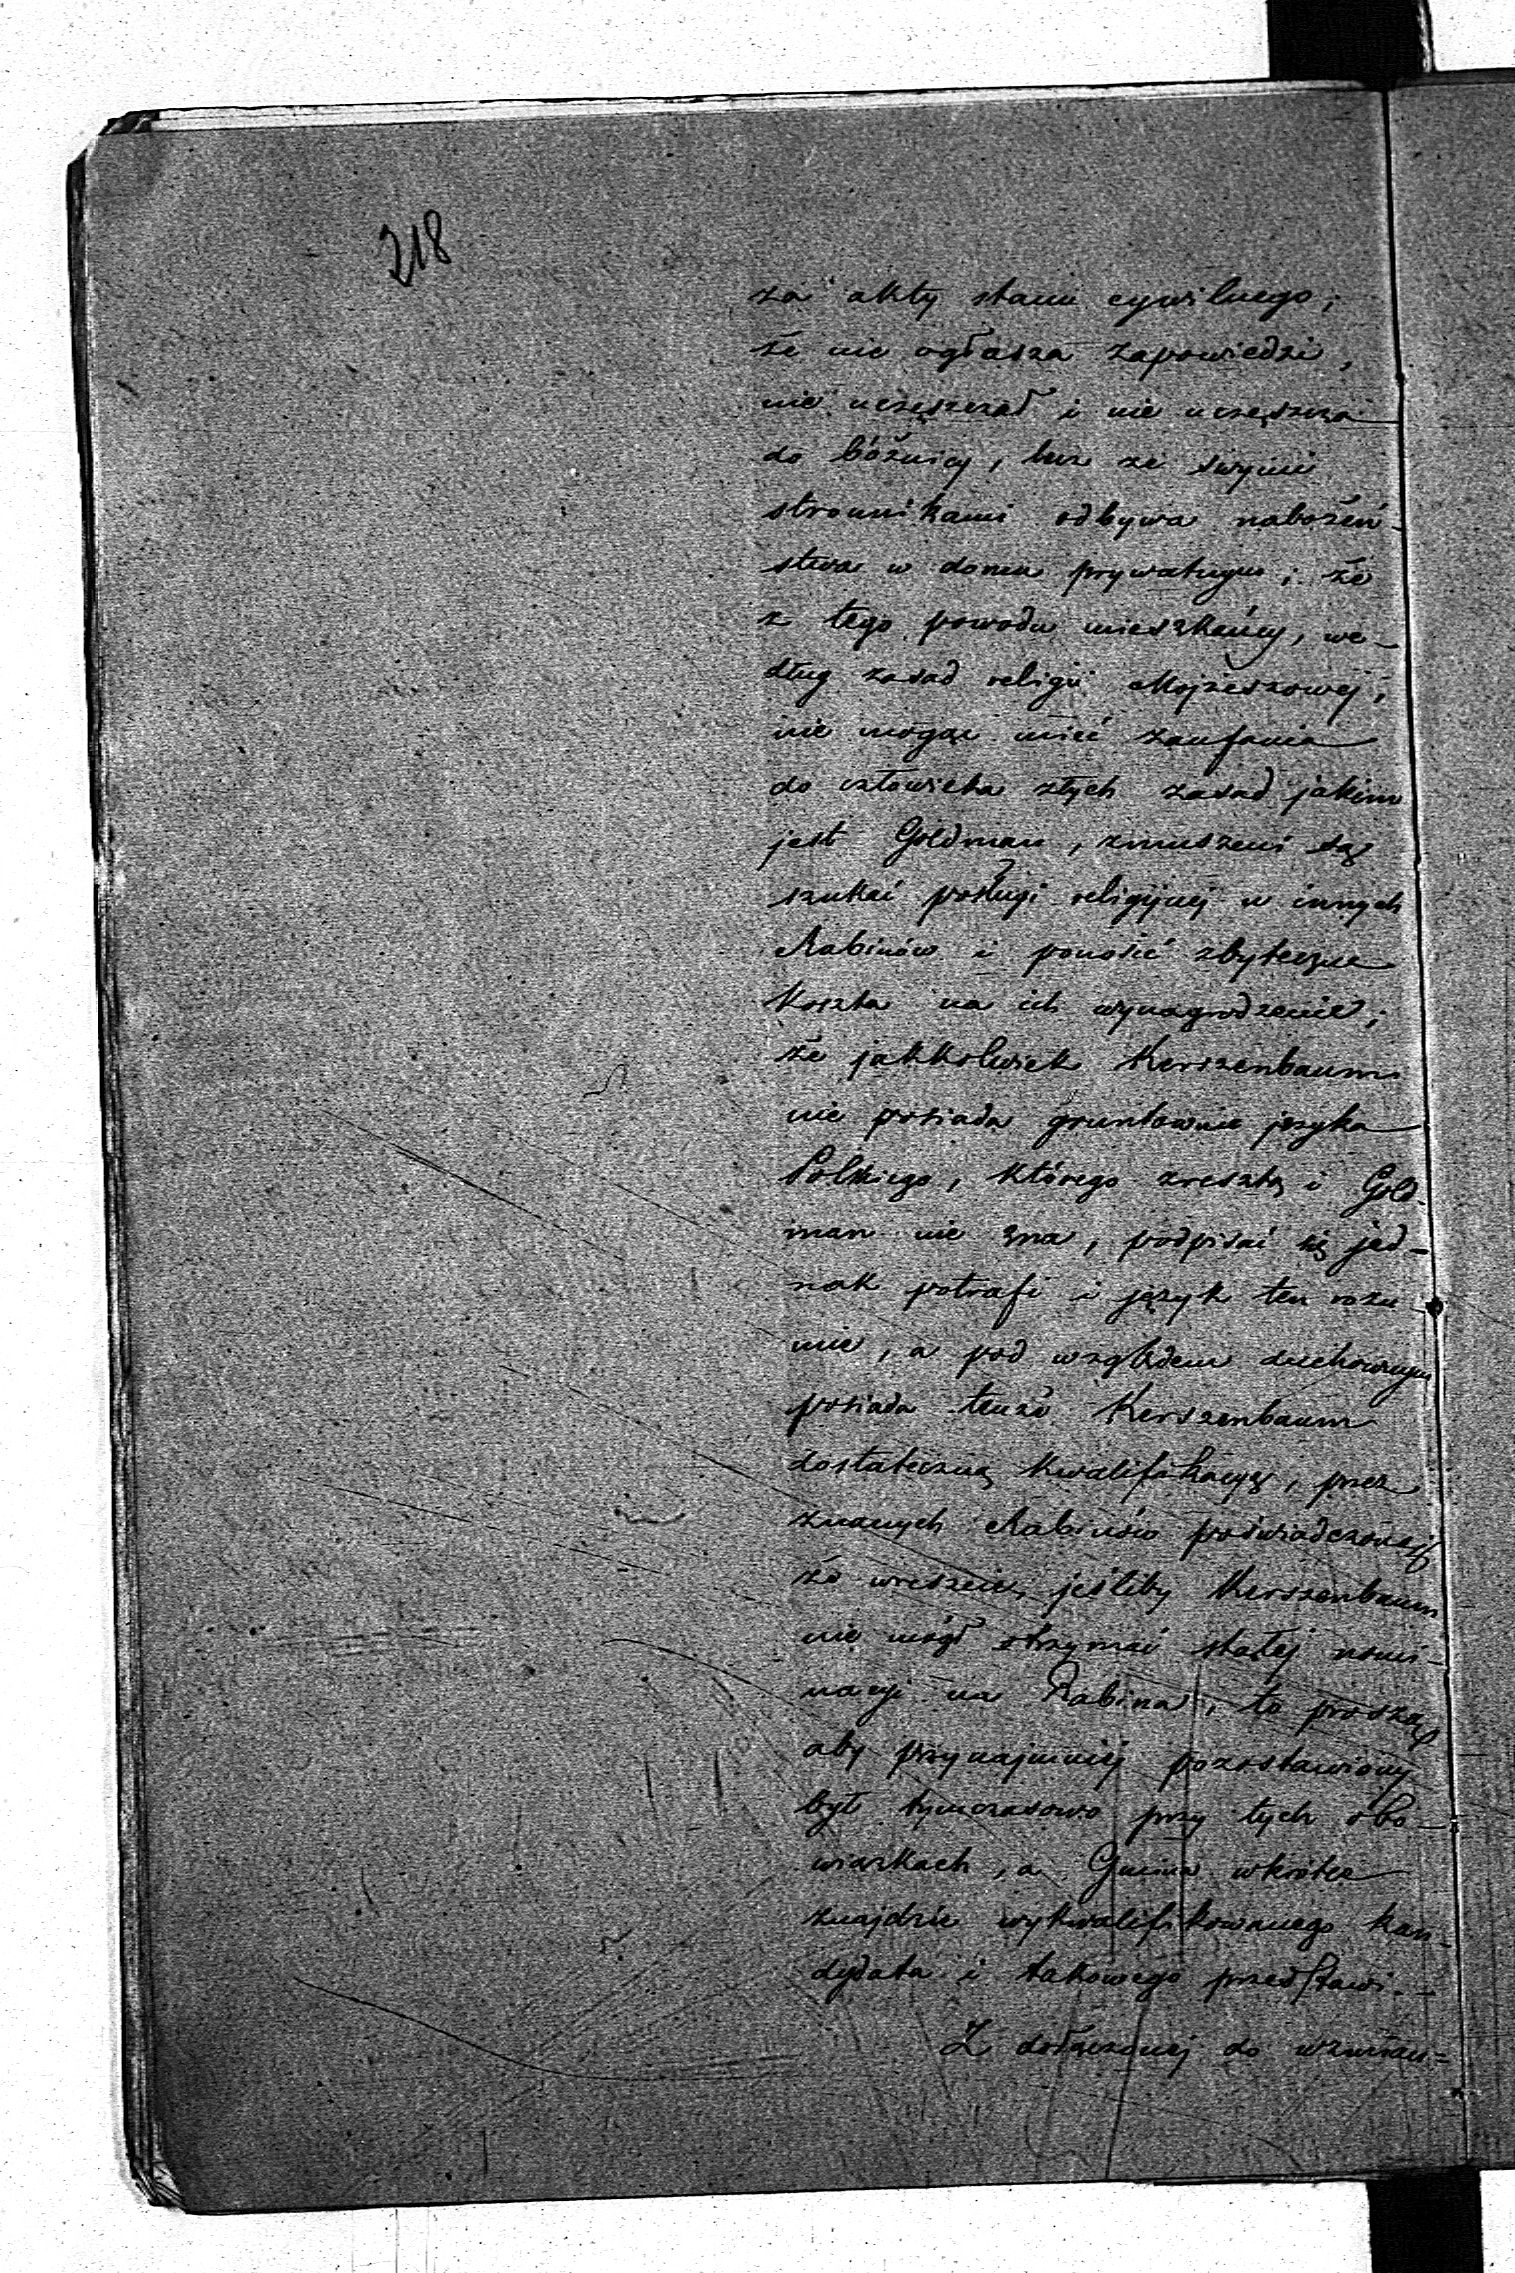 218
za akty stanu cywilnego;
że nie ogłasza zapowiedzi,
nie uczęszczał i nie uczęszcza
do bóżnicy, lecz ze swymi
stronnikami odbywa nabożeń-
stwa w domu prywatnym; że
z tego powodu mieszkańcy, we-
dług zasad religii Mojżeszowej,
nie mogąc mieć zaufania
do człowieka złych zasad jakim
jest Goldman, zmuszeni są
szukać posługi religijnej u innych
Rabinów i ponosić zbyteczne
koszta na ich wynagrodzenie;
że jakkolwiek Kerszenbaum
nie posiada gruntownie języka
Polskiego, którego zresztą i Gold-
man nie zna, podpisać się jed-
nak potrafi i język ten rozu-
mie, a pod względem duchownym
posiada tenże Kerszenbaum
dostateczną kwalifikacyę, przez
znanych Rabinów poświadczoną;
że wreszcie, jeśliby Kerszenbaum
nie mógł otrzymać stałej nomi-
nacyi na Rabina, to proszą,
aby przynajmniej pozostawiony
był tymczasowo przy tych obo-
wiązkach, a Gmina wkrótce
znajdzie wykwalifikowanego kan-
dydata i takowego przedstawi. -
Z dołączonej do wzmian=